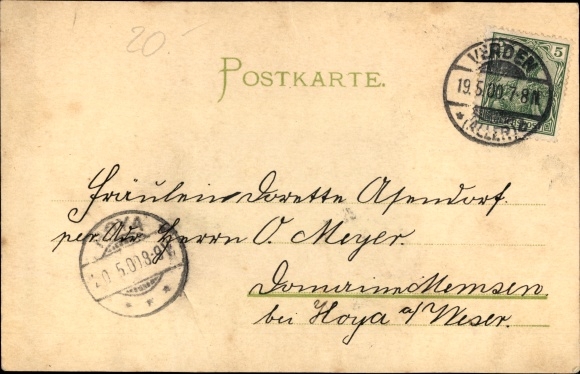 20.-
POSTKARTE.
5
VERDEN
19.5.00.7-8N.
* (ALLER) *
Fräulein Dorette Asendorf.
per Adr. Herrn O. Meyer.
HOYA
20.5.00.8-9V.
Domaine Memsen
bei Hoya a/Weser.